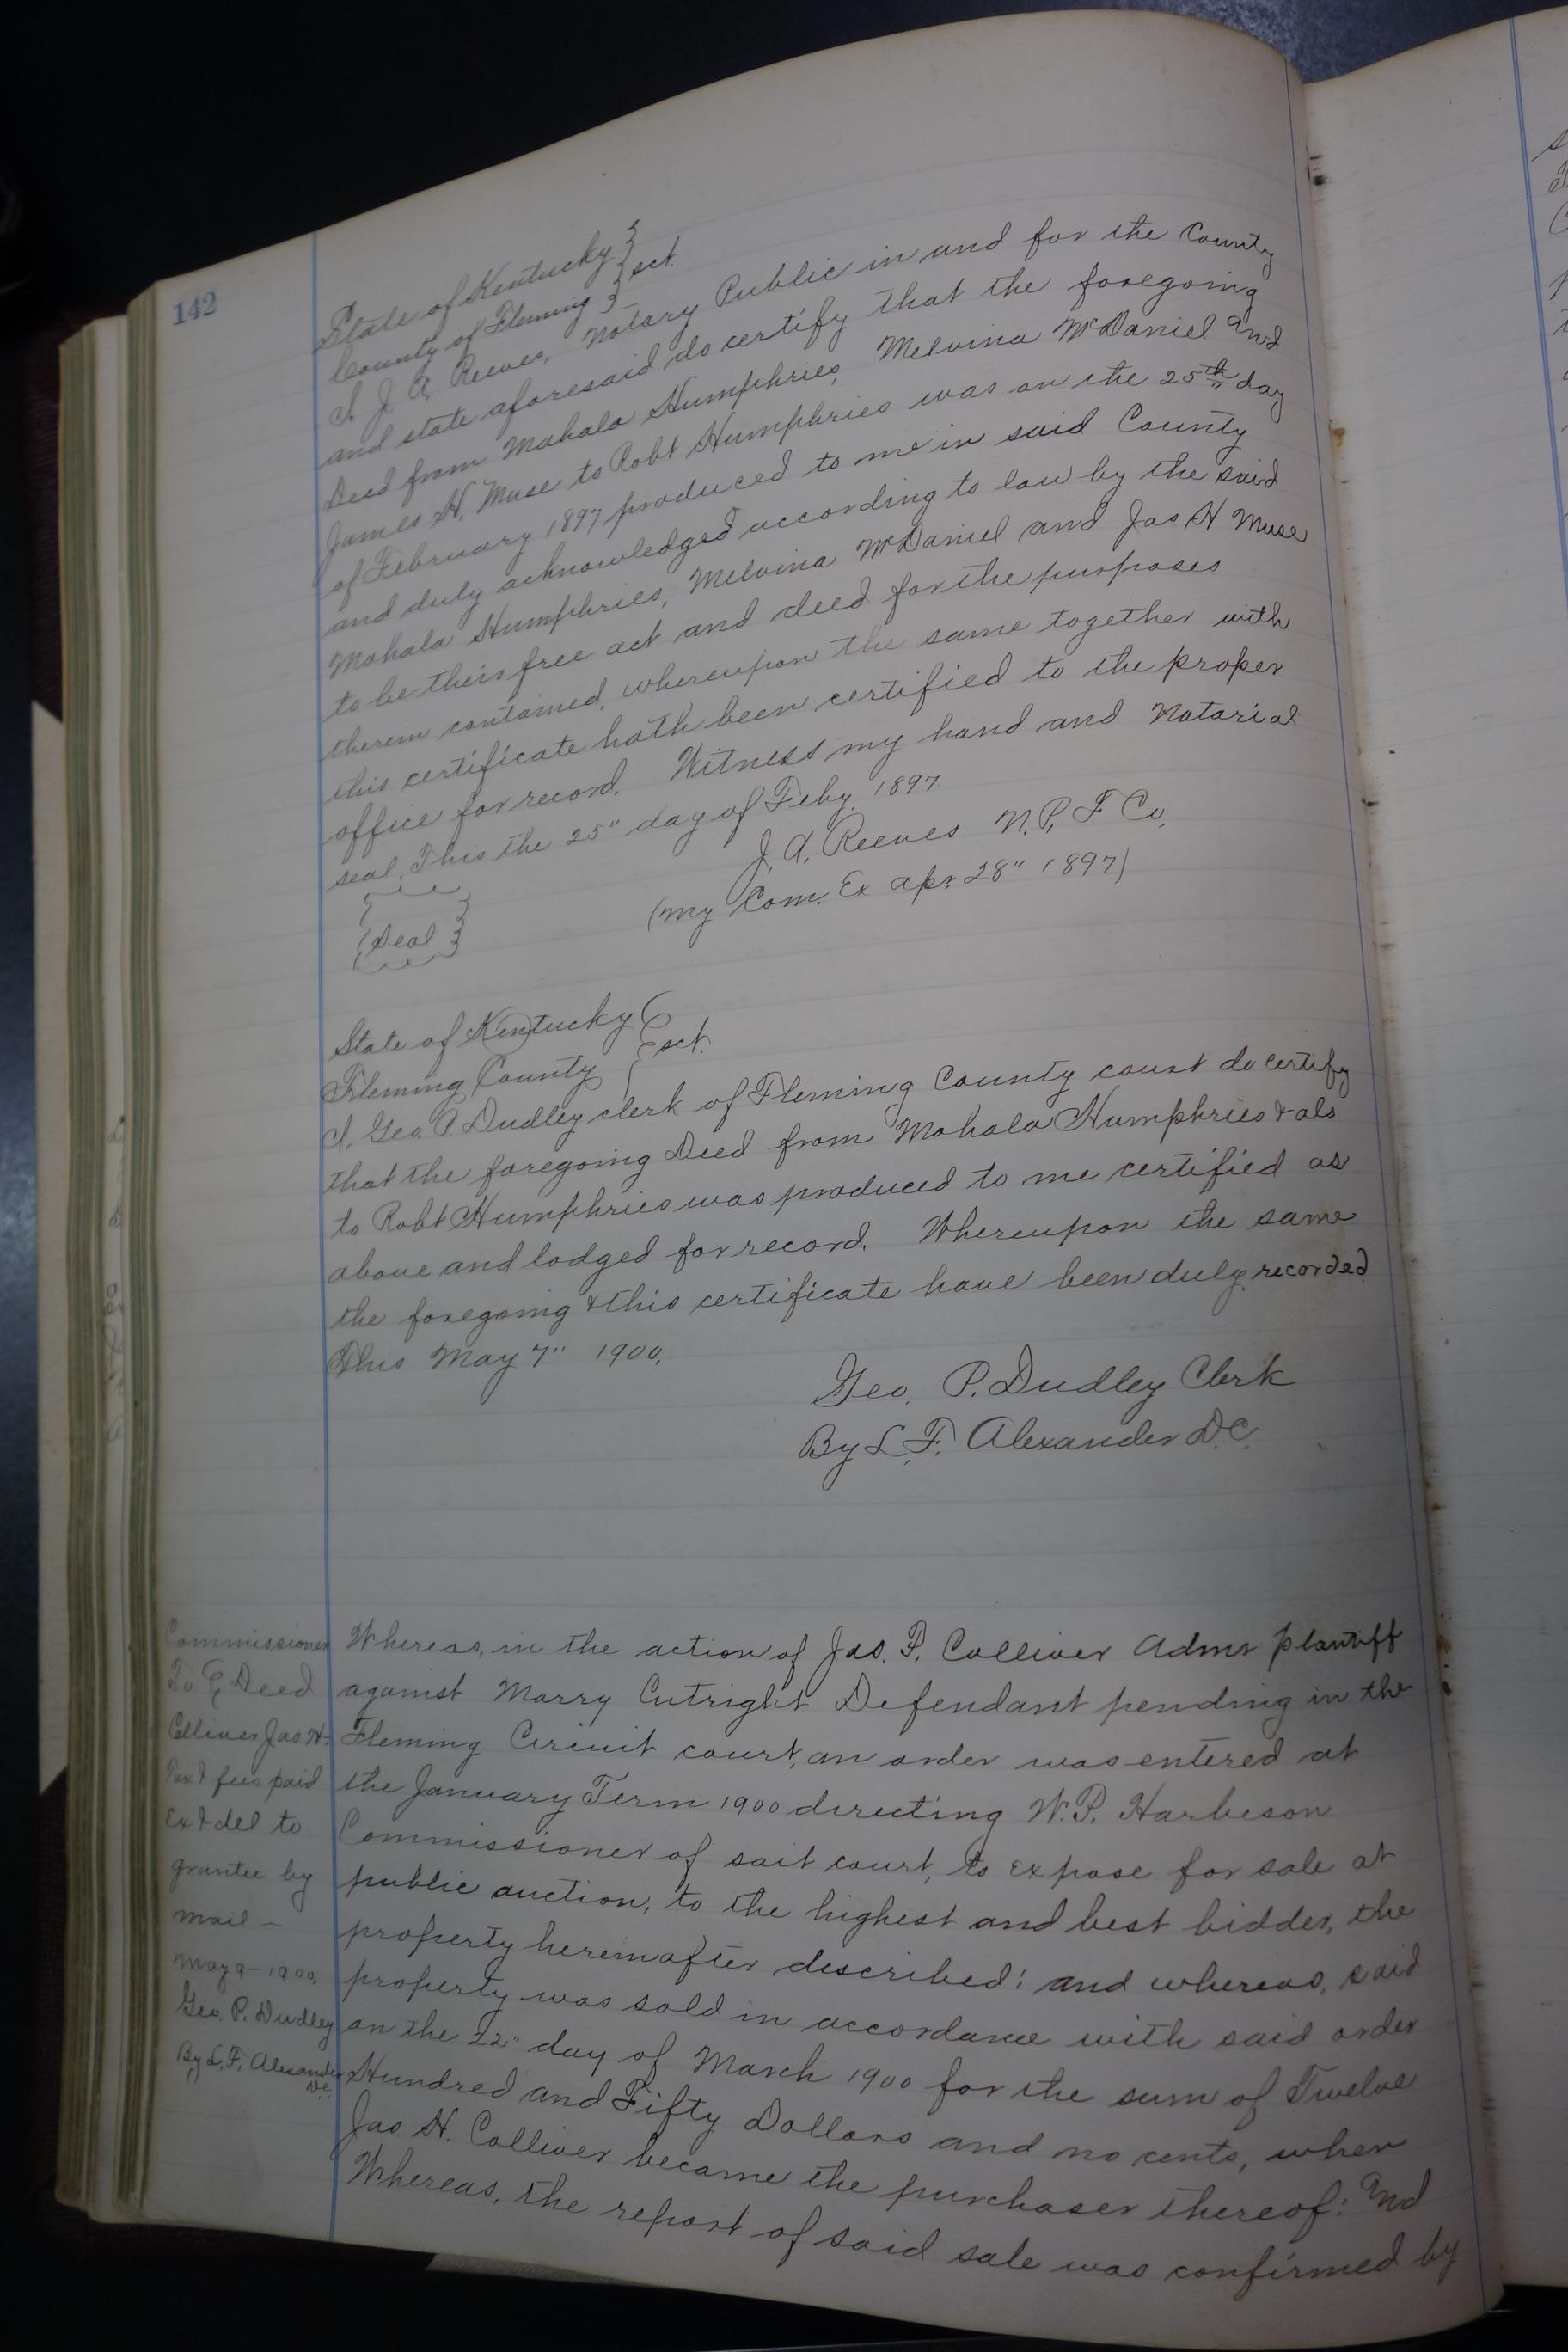 142
State of Kentucky
County of Fleming } sct.
I, J. A. Reeves, Notary Public in and for the County
and state aforesaid do certify that the foregoing
Deed from Mahala Humphries, Melvina McDaniel and
James H. Muse to Robt Humphries was on the 25th day
of February 1897 produced to me in said County
and duly acknowledged according to law by the said
Mahala Humphries, Melvina McDaniel and Jas H Muse
to be their free act and deed for the purposes
therein contained, whereupon the same together with
this certificate hath been certified to the proper
office for record. Witness my hand and Notarial
seal, This the 25" day of Feby. 1897
J. A. Reeves N.P. F Co.
(my Com. Ex apr. 28" 1897)
{Seal}
State of Kentucky
Fleming County } sct.
I, Geo. P. Dudley clerk of Fleming County court do certify
that the foregoing Deed from Mahala Humphries & als
to Robt Humphries was produced to me certified as
above and lodged for record. Whereupon the same
the foregoing & this certificate have been duly recorded
This May 7" 1900.
Geo. P. Dudley Clerk
By L. F. Alexander D.C.
Commissioner
To } Deed
Colliver Jas H.
Tax & fees paid
Ex & del to
grantee by
mail -
May 9 - 1900.
Geo. P. Dudley
By L. F. Alexander
D.C.
Whereas, in the action of Jas. P. Colliver Admr plantiff
against Marry Cutright Defendant pending in the
Fleming Circuit court, an order was entered at
the January Term 1900 directing W. P. Harbeson
Commissioner of sait court, to expose for sale at
public auction, to the highest and best bidder, the
property hereinafter described; and whereas, said
property was sold in accordance with said order
on the 22" day of March 1900 for the sum of Twelve
Hundred and Fifty Dollars and no cents, when
Jas. H. Colliver became the purchaser thereof: And
Whereas, the report of said sale was confirmed by